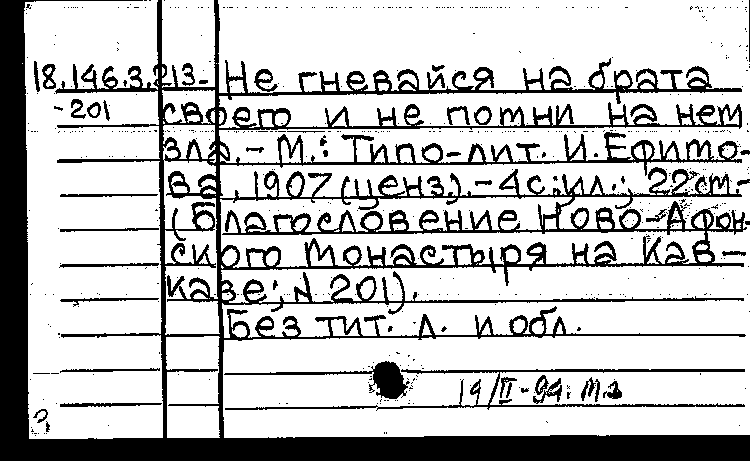 18.146.3.213- Не гневайся на брата
-201 своего и не потни на нем
зла.- М.: Типо-лит. И.Ефимо-
ва, 1907 (ценз.).- 4с.:ил.; 22см.-
(Благословение Ново-Афон-
ского монастыря на Кав-
казе; N 201).
Без тит. л. и обл.
19/II-94.